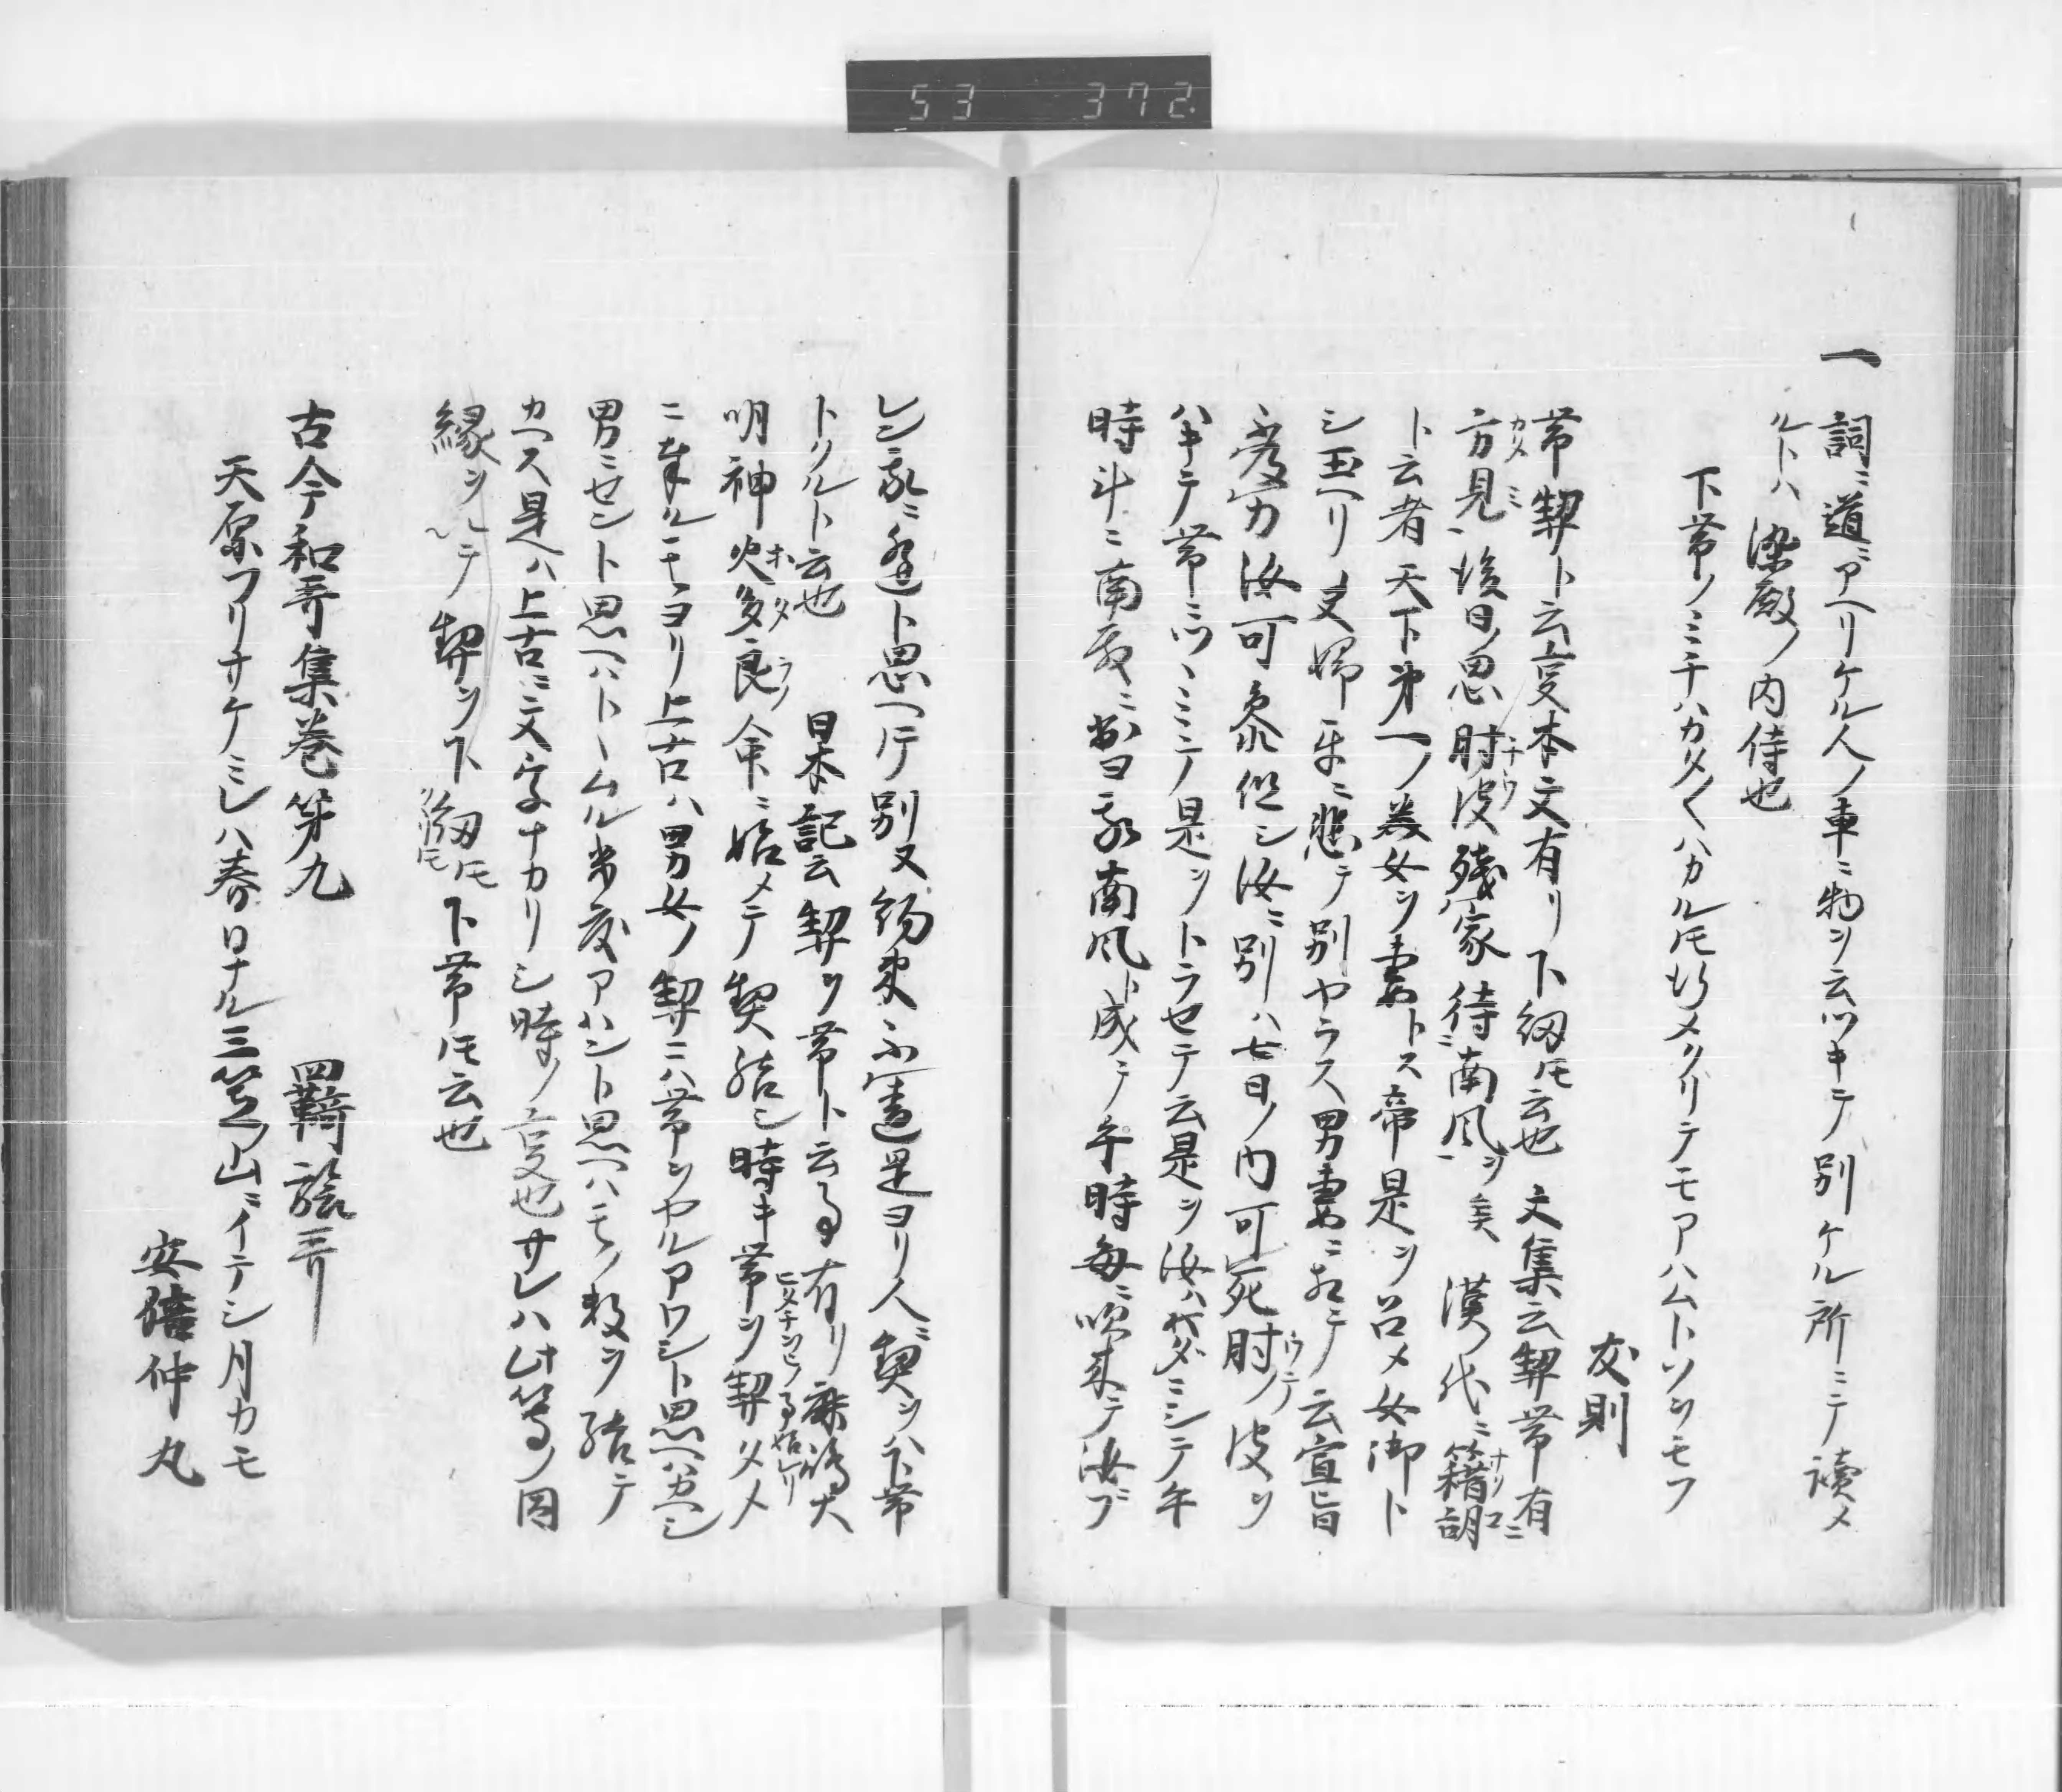 53 372
一 詞ニ道ニアヘリケル人ノ車ニ物ヲ云ツキテ別ケル所ニテ讀メ
ルトハ染殿ノ内侍也
下帯ノミチハカタ〱ハカルトモ行メクリテモアハムトソヲモフ
友則
帯契ト云事本文有リ下紐トモ云也文集云契帯有
方見後日思肘後残家待南風矣漢代ニ籍胡
ト云者天下第一ノ美女ヲ妻トス帝是ヲ召メ女御ト
シ玉ヘリ夫婦互ニ悲テ別ヤラス男妻ニ云宣旨
力汝可参但シ汝ニ別ハ七日ノ内可死肘ノ後ヲ
ハキテ帯ニツヽミテ是ヲトラセテ云是ヲ汝ハタミシテ午
時斗ニ南殿ニ出ヨ我南風ト成テ午時毎ニ吹来テ汝ヲ
レシ我ニ逢ト思ヘトテ別ヌ約束不違是ヨリ人ニ契ヲハ下帯
トクルト云也 日本記云契ヲ帯ト云事有リ鹿嶋大
明神火多良ノ命ニ始メテ契結シ時キ帯ヲ契タメ
ニ奉ルニヨリ上古ハ男女ノ契ニハ帯ヲヤルアワシト思ヘハカヘシ
男ニセント思ヘハトヽムル来度アハント思ヘハモノ数ヲ結テ
カヘス是ハ上古ニ文字ナカリシ時ノ事也サレハ此等ノ因
縁ヲシテ契ヲ下紐トモ下帯トモ云也
古今和哥集巻第九 羇旅哥
天原フリサケミレハ春日ナル三笠ノ山ニイテシ月カモ
安倍仲丸